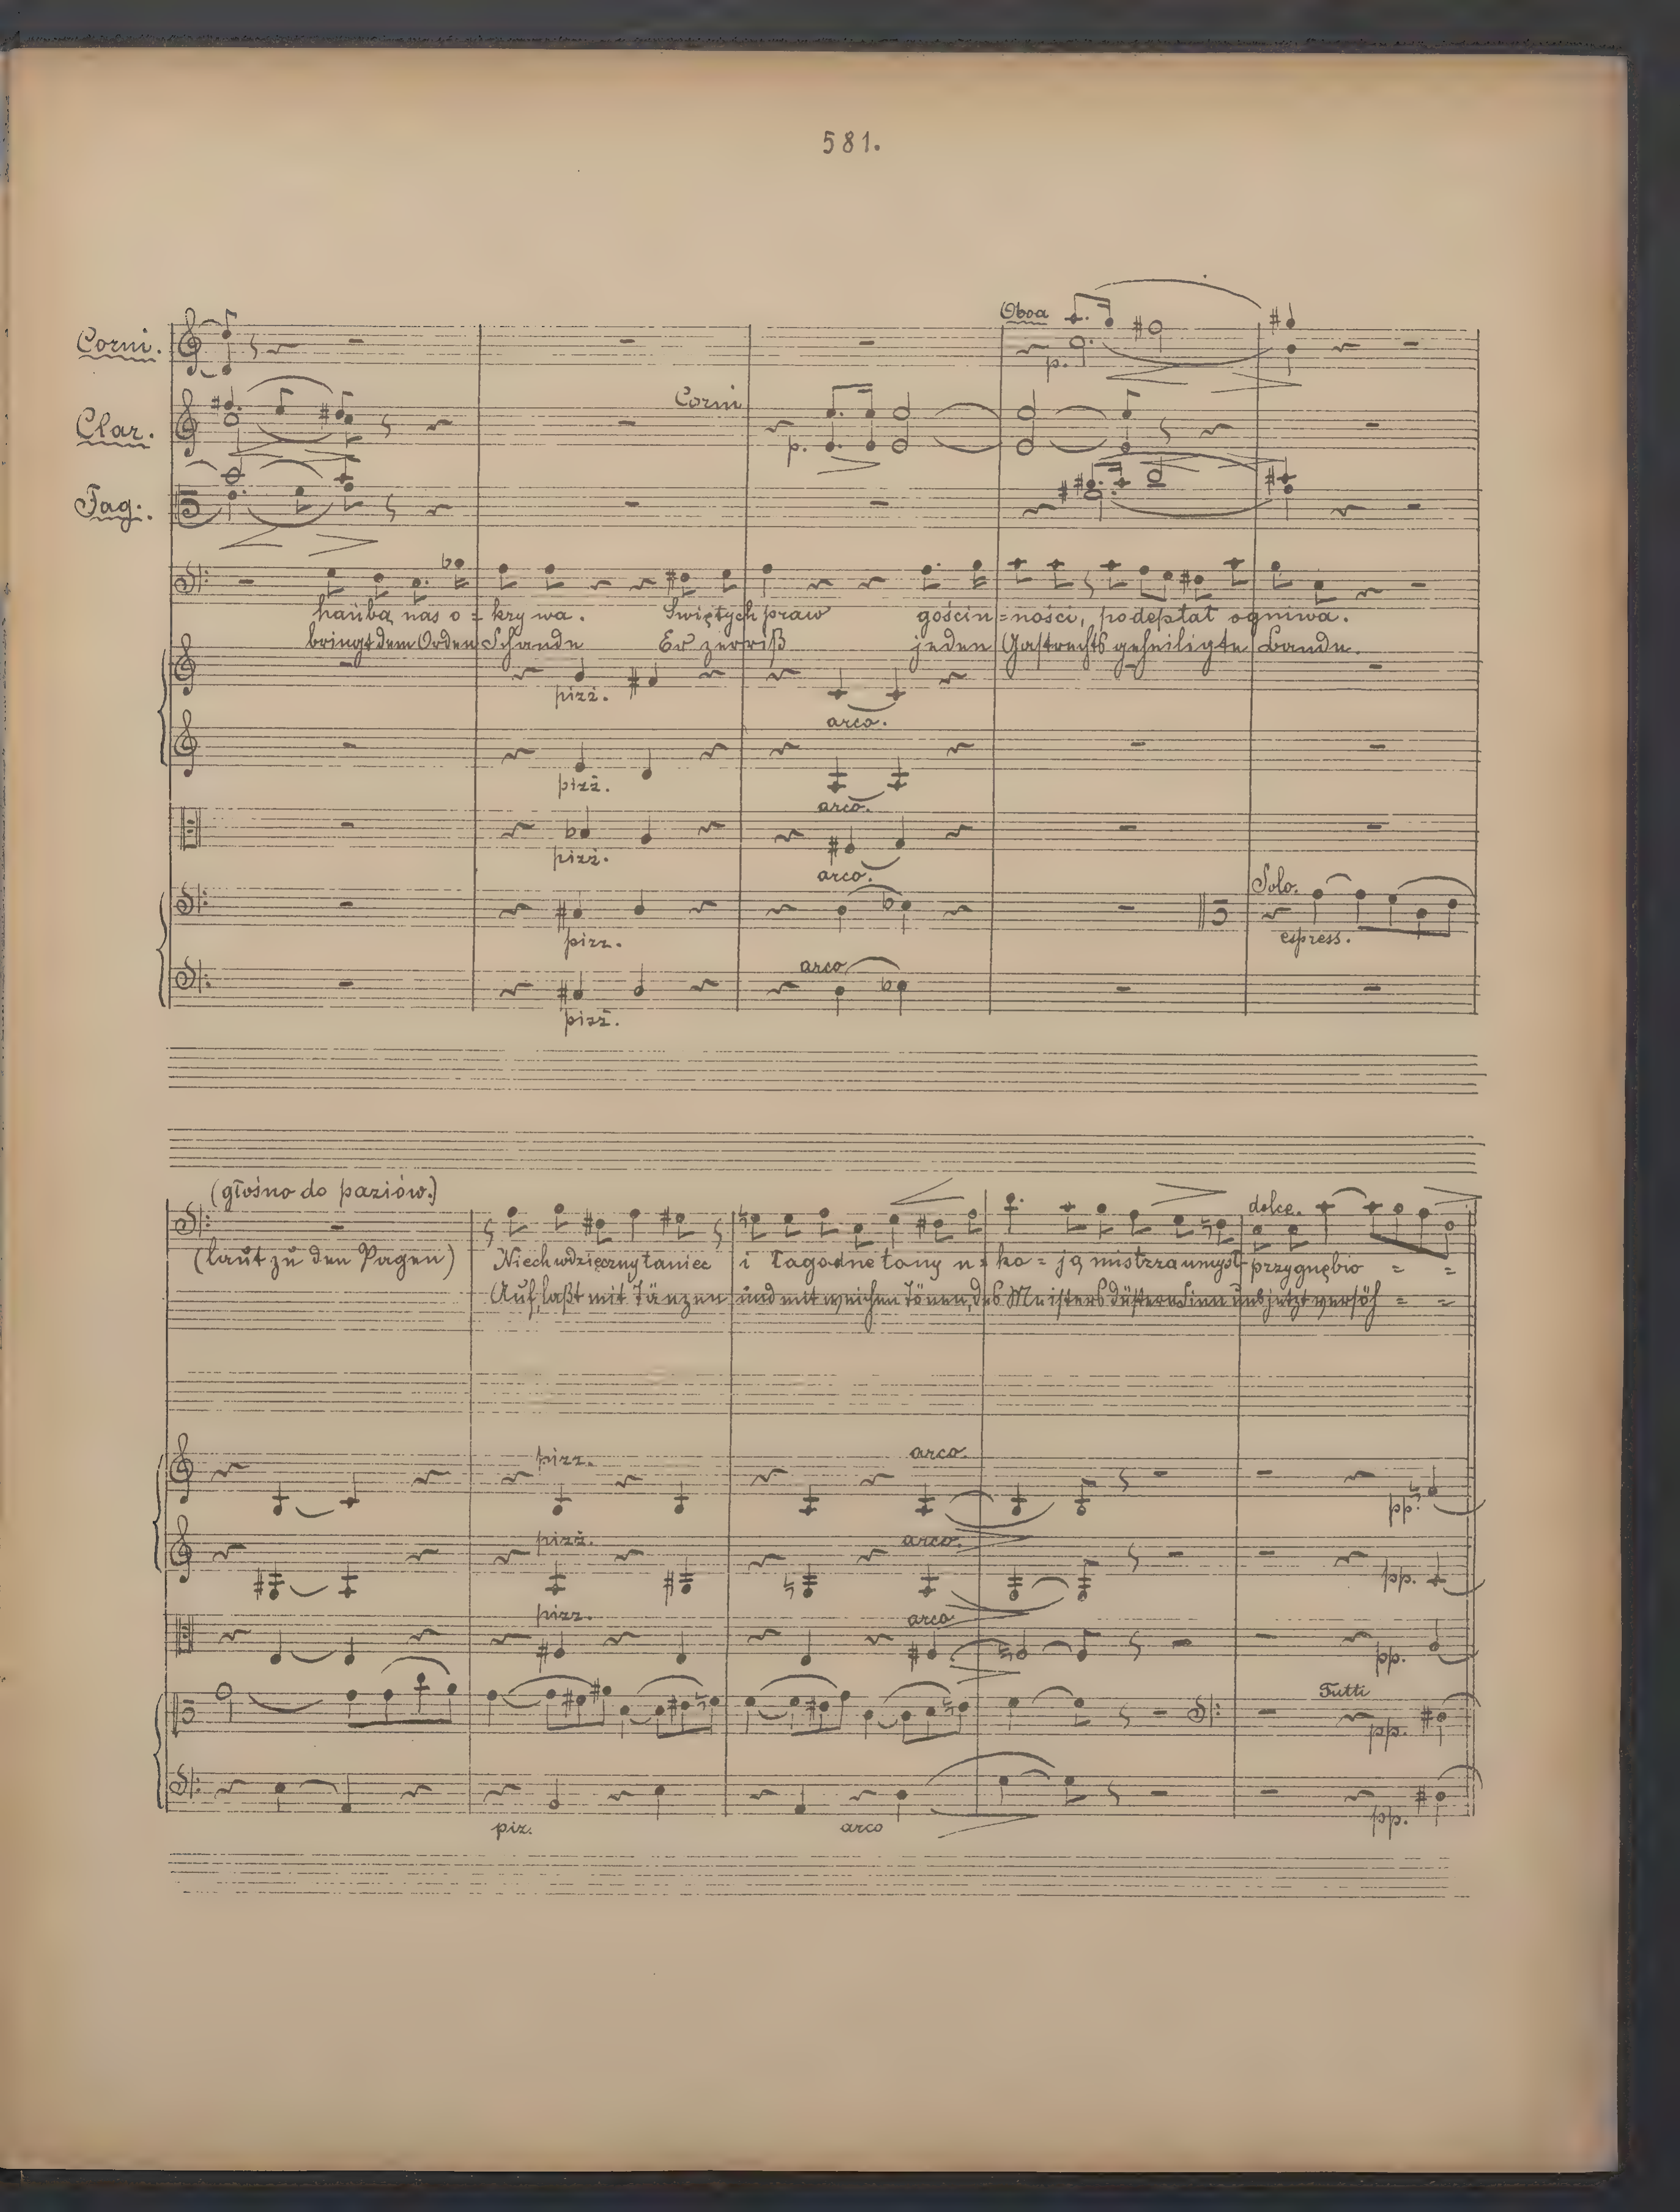 581.
Oboa
Corni.
p.
Corni
Clar.
p.
Fag.
hańba nas o = kry wa. Świętych praw gościn = ności, podeptał ogniwa.
bringt dem Orden Schande Er zerriß jeden Gastrechts geheiligte Bande.
pizz.
arco.
pizz.
arco.
pizz.
arco.
Solo.
pizz.
espress.
arco
pizz.
(głośno do paziów.)
dolce.
(laut zu den Pagen) Niech wdzięczny taniec i łagodne tony u = ko = ją mistrza umysł przygnębio = =
Auf, laßt mit Tänzen und mit weichen Tönen, des Meisters düstern Sinn uns jetzt versöh = =
pizz. arco.
pp.
pizz. arco.
pp.
pizz. arco
pp.
Tutti
pp.
piz. arco pp.